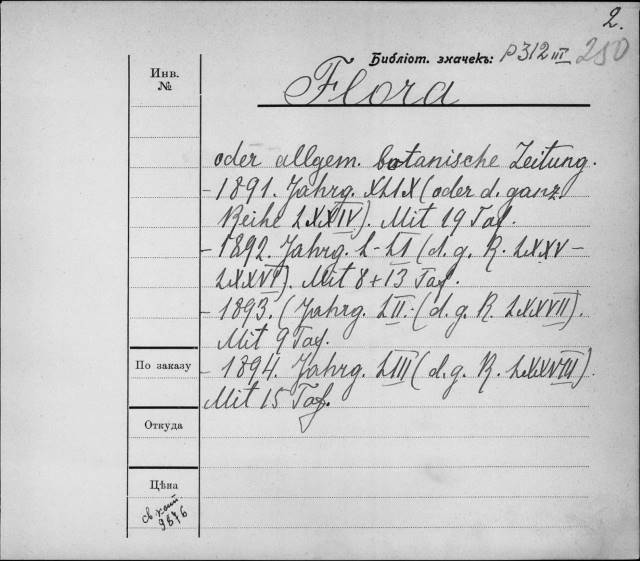 2.
Библiот. значекъ: P 312 III 250
Инв.
№
Flora
oder allgem. botanische Zeitung.
- 1891. Jahrg. XLIX (oder d. ganz.
Reihe LXXIV). Mit 19 Taf.
- 1892. Jahrg. L-LI (d. g. R. LXXV-
LXXVI). Mit 8+13 Taf.
- 1893. (Jahrg. LII. (d. g. R. LXXVII).
Mit 9 Taf.
- 1894. Jahrg. LIII (d. g. R. LXXVIII).
Mit 15 Taf.
По заказу
Откуда
Цѣна
св
9876